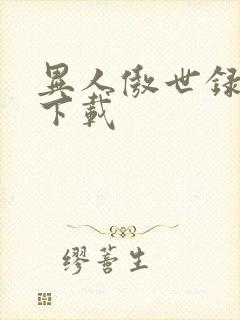 異人傲世録
下載
缪蓍生